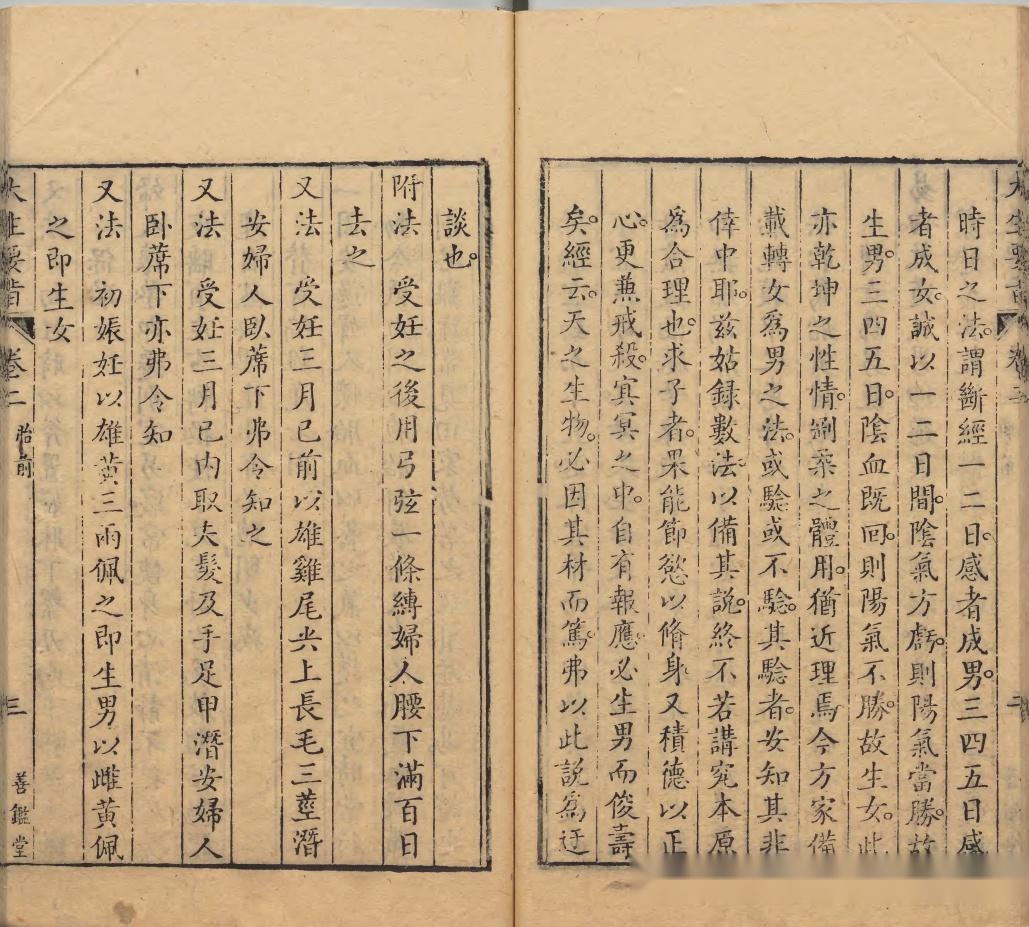 時日之法。謂斷經一二日。感者成男。三四五日感
者成女。誠以一二日間。陰氣方虧。則陽氣當勝。故
生男。三四五日。陰血既回。則陽氣不勝。故生女。此
亦乾坤之性情。剛柔之體用。猶近理焉。今方家備
載轉女為男之法。或驗或不驗。其驗者。安知其非
倖中耶。玆姑録數法。以備其說。終不若講究本原
為合理也。求子者。果能節慾以脩身。又積德以正
心。更兼戒殺。冥冥之中。自有報應。必生男而俊壽
矣。經云。天之生物。必因其材而篤。弗以此說為迂
談也。
附法　受妊之後用弓弦一條縛婦人腰下滿百日
去之
又法　受妊三月已前以雄雞尾尖上長毛三莖潛
安婦人臥蓆下弗令知之
又法　受妊三月已內取夫髮及手足甲潛安婦人
臥蓆下亦弗令知
又法　初娠妊以雄黃三兩佩之即生男以雌黃佩
之即生女
大生要旨　卷二　胎前　三　善鑑堂